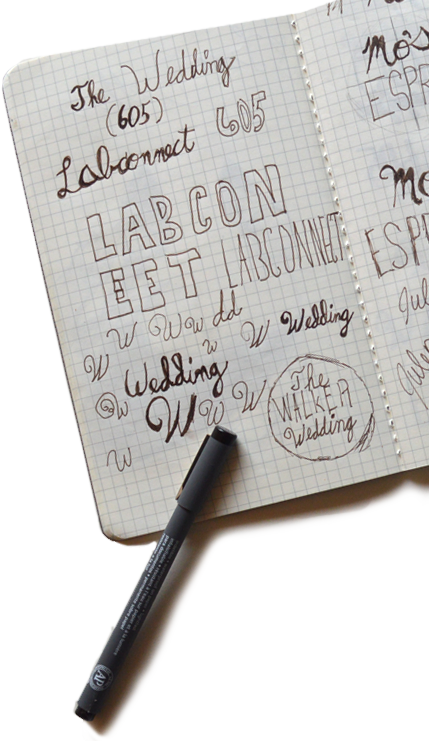 The Wedding
(605) 605
Labconnect
LABCON
EET LABCONNECT
W W W w dd
w W Wedding
W Wedding
W W W W
W
The
WALKER
Wedding
Mo
ESPR
Mo
ESP